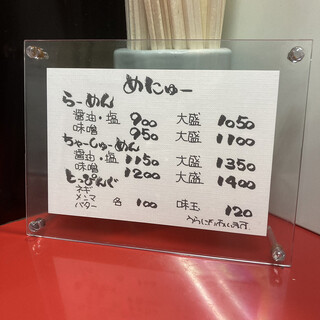 めにゅー
らーめん
醤油・塩 900 大盛 1050
味噌 950 大盛 1100
ちゃーしゅーめん
醤油・塩 1150 大盛 1350
味噌 1200 大盛 1400
とっぴんぐ
ネギ
メンマ 各 100 味玉 120
バター